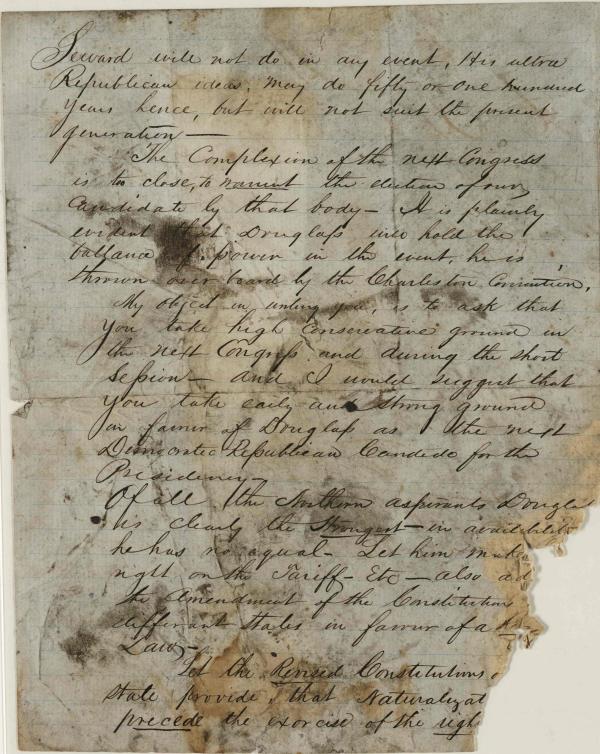 Seward will not do in any event, His ultra
Republican ideas, may do fifty or one hundred
Years hence, but will not suit the present
generation—
The Complexion of the next Congress
is too close, to warrent the election of our
Candidate by that body— It is plainly
evident that Douglass will hold the
ballance of power in the event, he is
thrown over board by the Charleston Convention,
My object in writing you, is to ask that
You take high Conservative ground in
the next Congress, and during the short
Session— and I would suggest that
You take early and strong ground
in favor of Douglass as the next
Democratic Republican Candedate for the
Presidency—
Of all the Northern aspirants Dougla
is clearly the Strongest— in availibilit
he has no equal— Let him make
right on the Tariff— Etc— also ad
the Amendment of the Constitutions
differant States in favour of a
Law—
Let the Revised Constitutions
state provide, that Naturalizat
precede the exercise of the righ